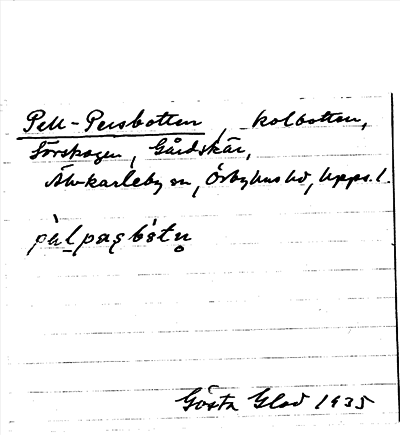 Pell-Persbotten, kolbotten,
Torskogen, Gårdskär,
Älvkarleby sn, Örbyhus hd, Upps. l.
Gösta Glad 1935